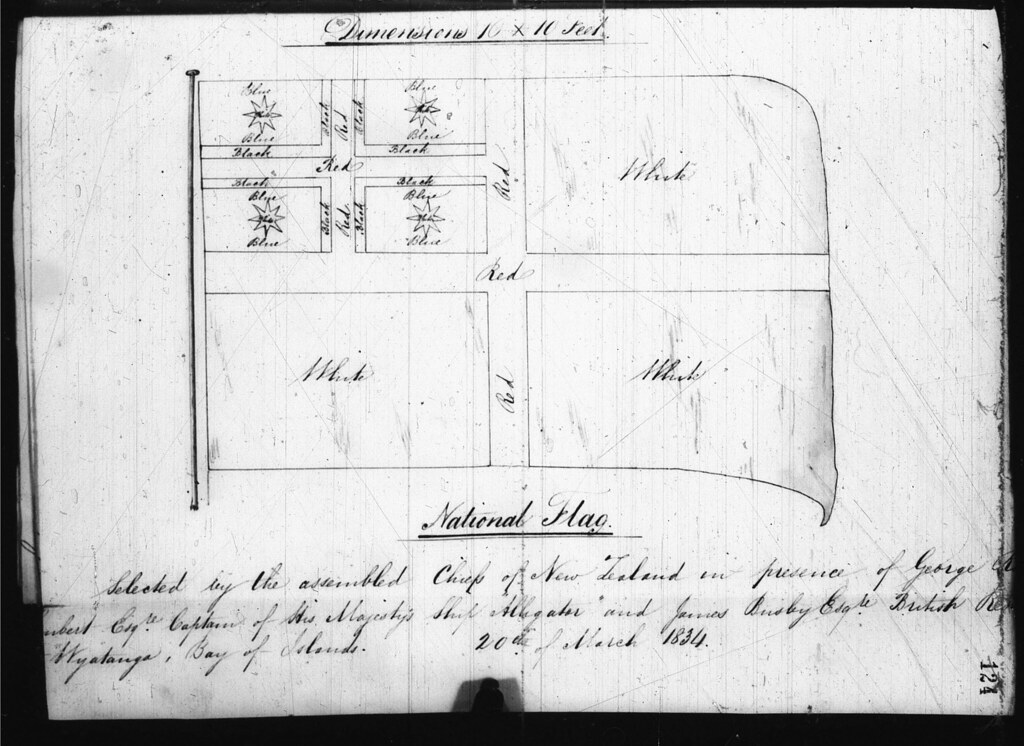 Dimensions 16 x 10 Feet
Blue
Blue
Black
Red
Black
Blue
Blue
Black
Red
Black
Red
White
Black
Black
Blue
Blue
Black
Red
Black
Blue
Blue
Red
White
Red
White
National Flag.
Selected by the assembled Chiefs of New Zealand in presence of George
Esqre Captain of His Majesty's Ship "Alligator" and James Busby Esqre British
Wyatanga, Bay of Islands. 20th of March 1834.
124